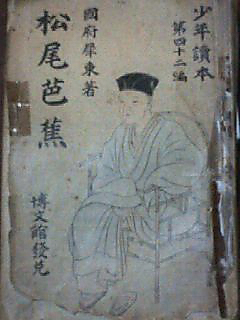 少年讀本
第四十二編
國府犀東著
松尾芭蕉
博文館發兌